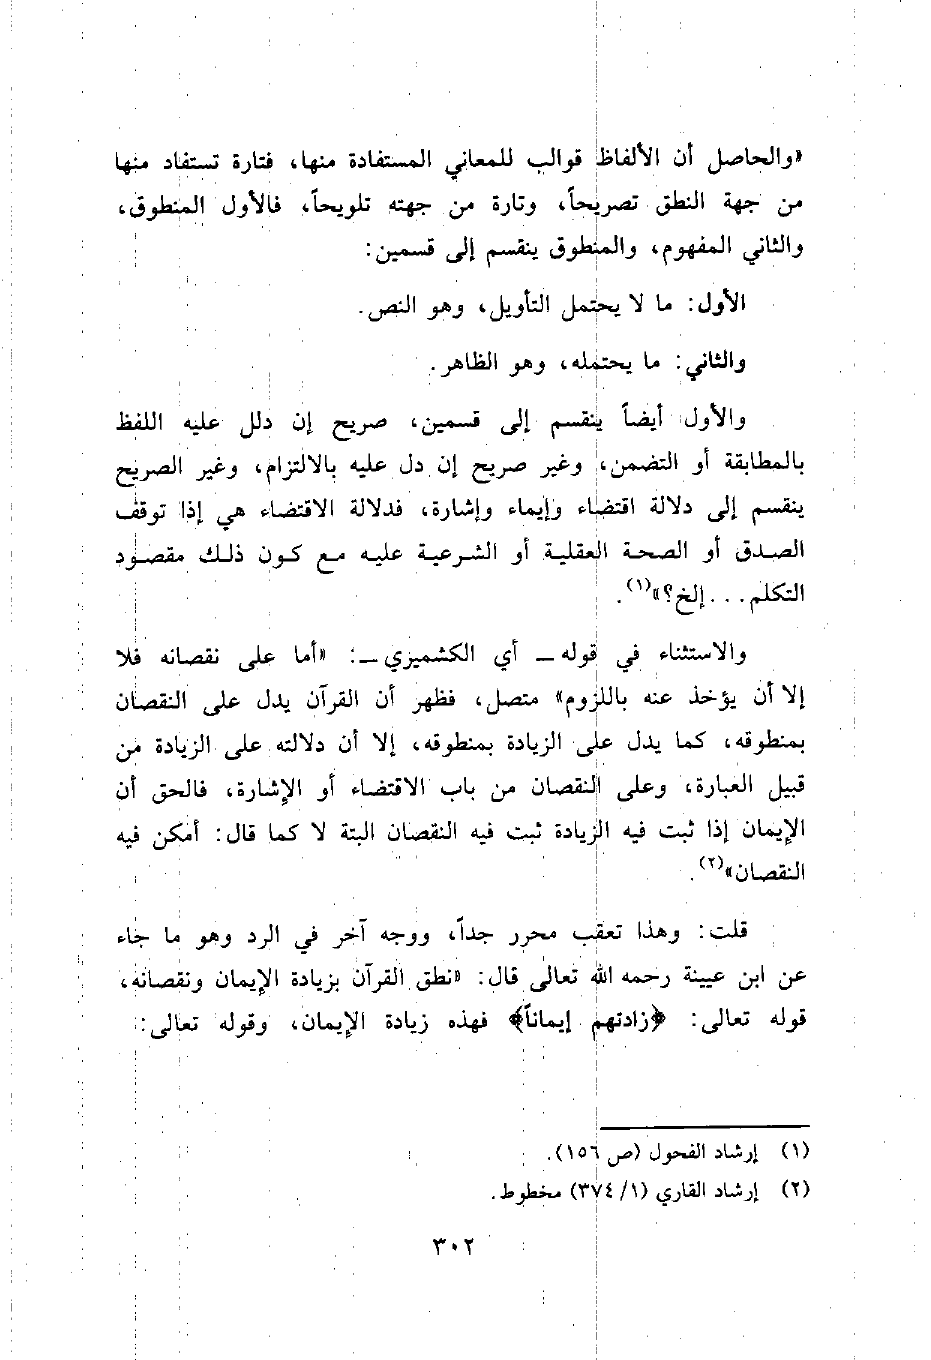 «والحاصل أن الألفاظ قوالب للمعاني المستفادة منها، فتارة تستفاد منها
من جهة النطق تصريحاً، وتارة من جهته تلويحاً، فالأول المنطوق،
والثاني المفهوم، والمنطوق ينقسم إلى قسمين:
الأول: ما لا يحتمل التأويل، وهو النص.
والثاني: ما يحتمله، وهو الظاهر.
والأول أيضاً ينقسم إلى قسمين، صريح إن دلل عليه اللفظ
بالمطابقة أو التضمن، وغير صريح إن دل عليه بالالتزام، وغير الصريح
ينقسم إلى دلالة اقتضاء وإيماء وإشارة، فدلالة الاقتضاء هي إذا توقف
الصدق أو الصحة العقلية أو الشرعية عليه مع كون ذلك مقصود
التكلم... إلخ؟»(١).
والاستثناء في قوله ـ أي الكشميري ـ: «أما على نقصانه فلا
إلا أن يؤخذ عنه باللزوم» متصل، فظهر أن القرآن يدل على النقصان
بمنطوقه، كما يدل على الزيادة بمنطوقه، إلا أن دلالته على الزيادة من
قبيل العبارة، وعلى النقصان من باب الاقتضاء أو الإشارة، فالحق أن
الإيمان إذا ثبت فيه الزيادة ثبت فيه النقصان البتة لا كما قال: أمكن فيه
النقصان»(٢).
قلت: وهذا تعقب محرر جداً، ووجه آخر في الرد وهو ما جاء
عن ابن عيينة رحمه الله تعالى قال: «نطق القرآن بزيادة الإيمان ونقصانه،
قوله تعالى: ﴿زادتهم إيماناً﴾ فهذه زيادة الإيمان، وقوله تعالى:
(١) إرشاد الفحول (ص ١٥٦).
(٢) إرشاد القاري (١/ ٣٧٤) مخطوط.
٣٠٢